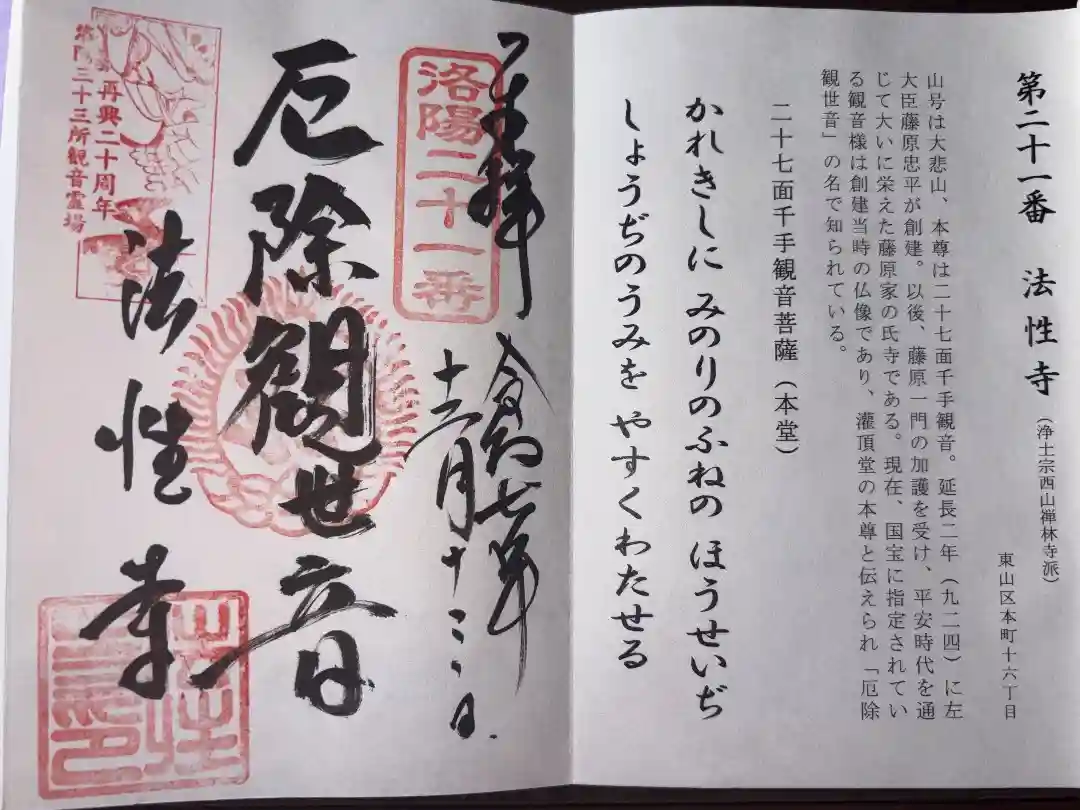 第二十一番 法性寺(浄土宗西山禅林寺派)
東山区本町十六丁目
山号は大悲山、本尊は二十七面千手観音。延長二年(九二四)に左
大臣藤原忠平が創建。以後、藤原一門の加護を受け、平安時代を通
じて大いに栄えた藤原家の氏寺である。現在、国宝に指定されてい
る観音様は創建当時の仏像であり、灌頂堂の本尊と伝えられ「厄除
観世音」の名で知られている。
二十七面千手観音菩薩(本堂)
かれきしに みのりのふねの ほうせいぢ
しょうぢのうみを やすくわたせる
奉拝 令和七年
洛陽二十一番
十二月十二日
厄除観世音
法性寺
再興二十周年
洛陽三十三所観音霊場